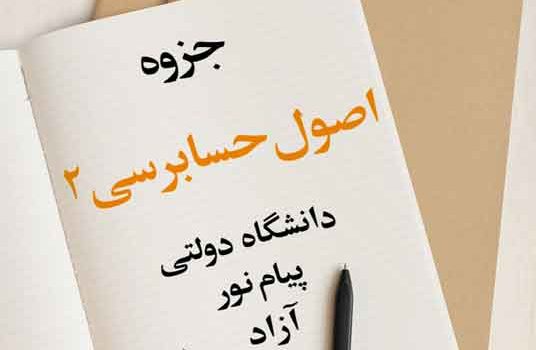 جزوه
اصول حسابرسی ۲
دانشگاه دولتی
پیام نور
آزاد